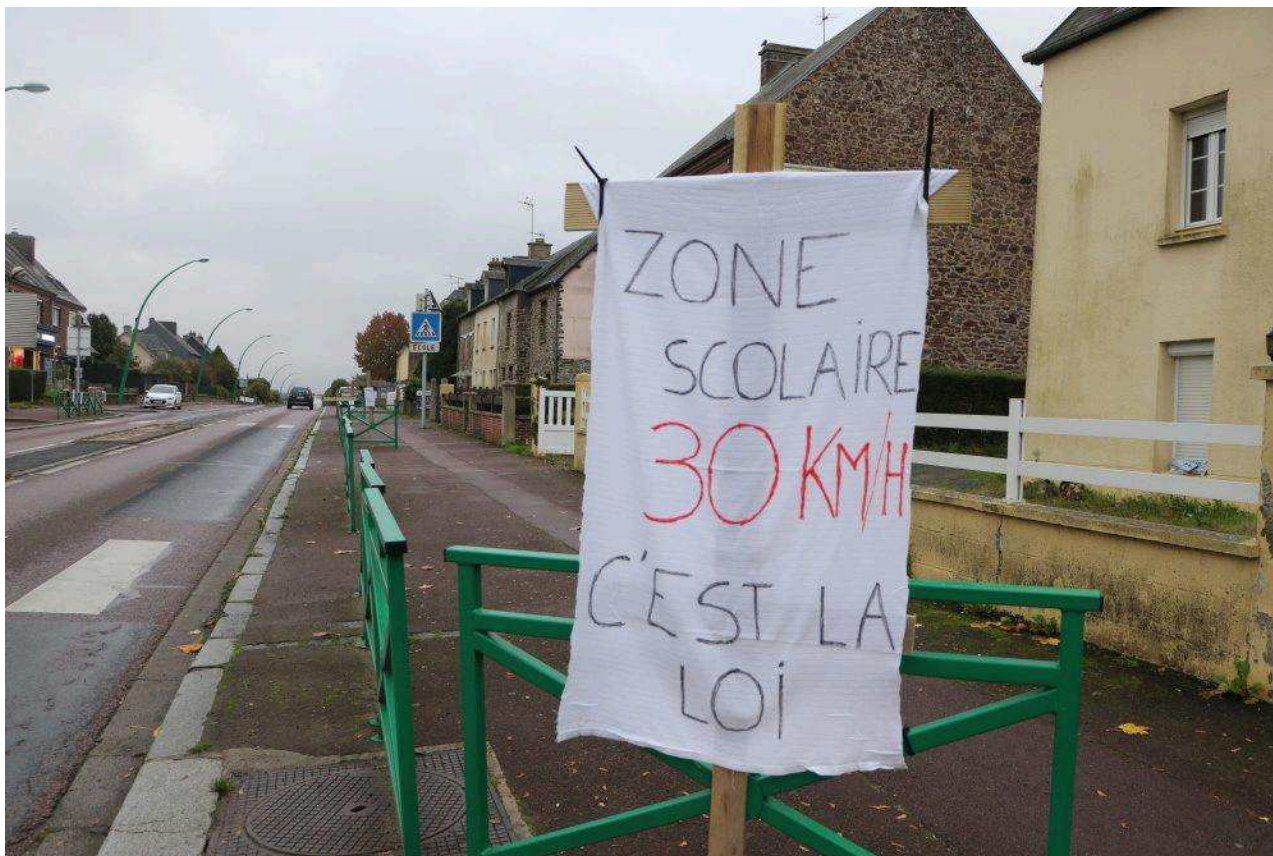 ZONE
SCOLAIRE
30 KM/H
C'EST LA
LOI
ECOLE